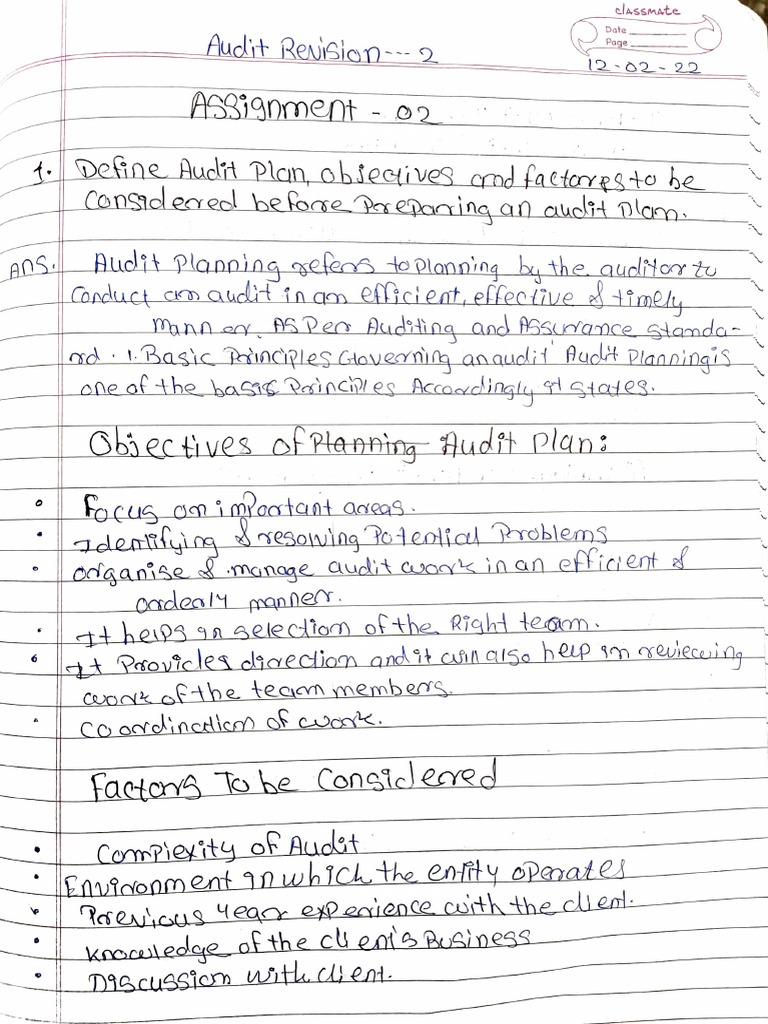 classmate
Date
Page
12-02-22
Audit Revision --- 2
Assignment - 02
1. Define Audit Plan, objectives and factores to be
considered before Preparing an audit Plan.
Ans. Audit Planning refers to planning by the auditor to
Conduct an audit in an efficient, effective & timely
manner. As Per Auditing and Assurance Standa-
rd. 1. Basic Principles Governing an audit' Audit Planning is
one of the basic Principles Accordingly it states.
Objectives of Planning Audit Plan:
• Focus on important areas.
• Identifying & resolving Potential Problems
• organise & manage audit work in an efficient &
orderly manner.
• It helps in selection of the Right team.
• It Provides direction and it will also help in reviewing
work of the team members.
• coordination of work.
Factors To be Considered
• Complexity of Audit
• Environment in which the entity operates
• Previous year experience with the client.
• knowledge of the client's Business
• Discussion with client.